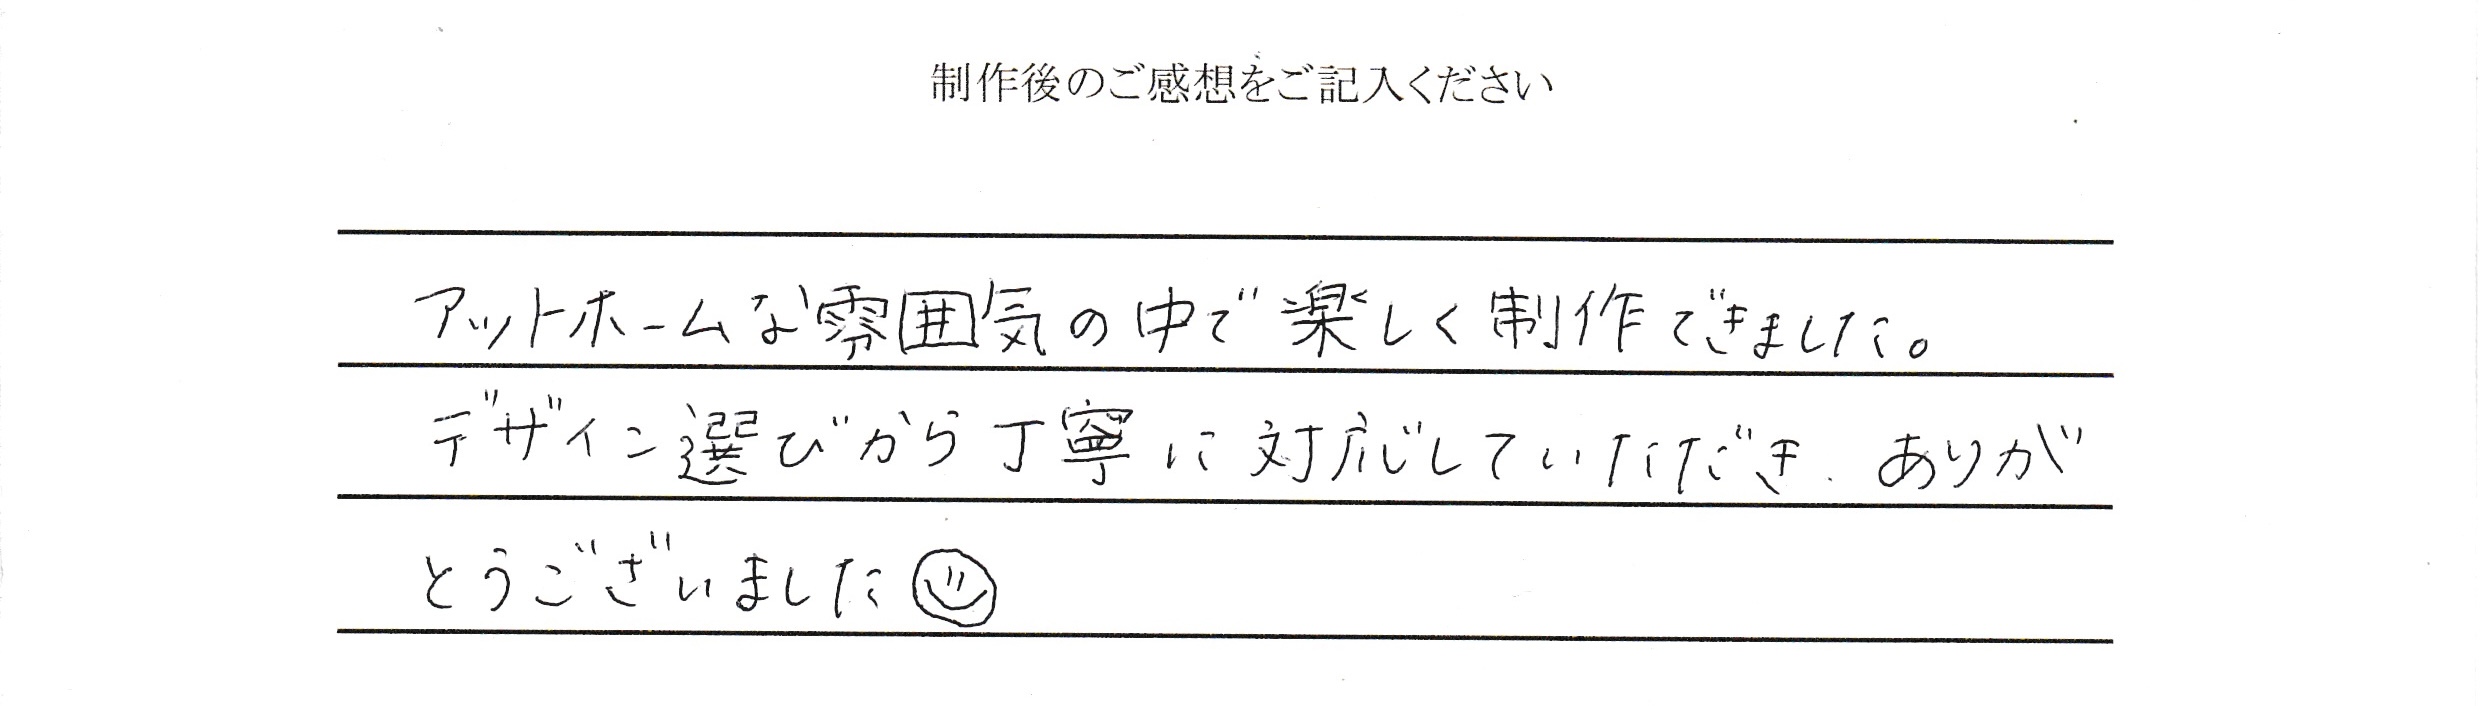 制作後のご感想をご記入ください
アットホームな雰囲気の中で楽しく制作できました。
デザイン選びから丁寧に対応していただき、ありが
とうございました